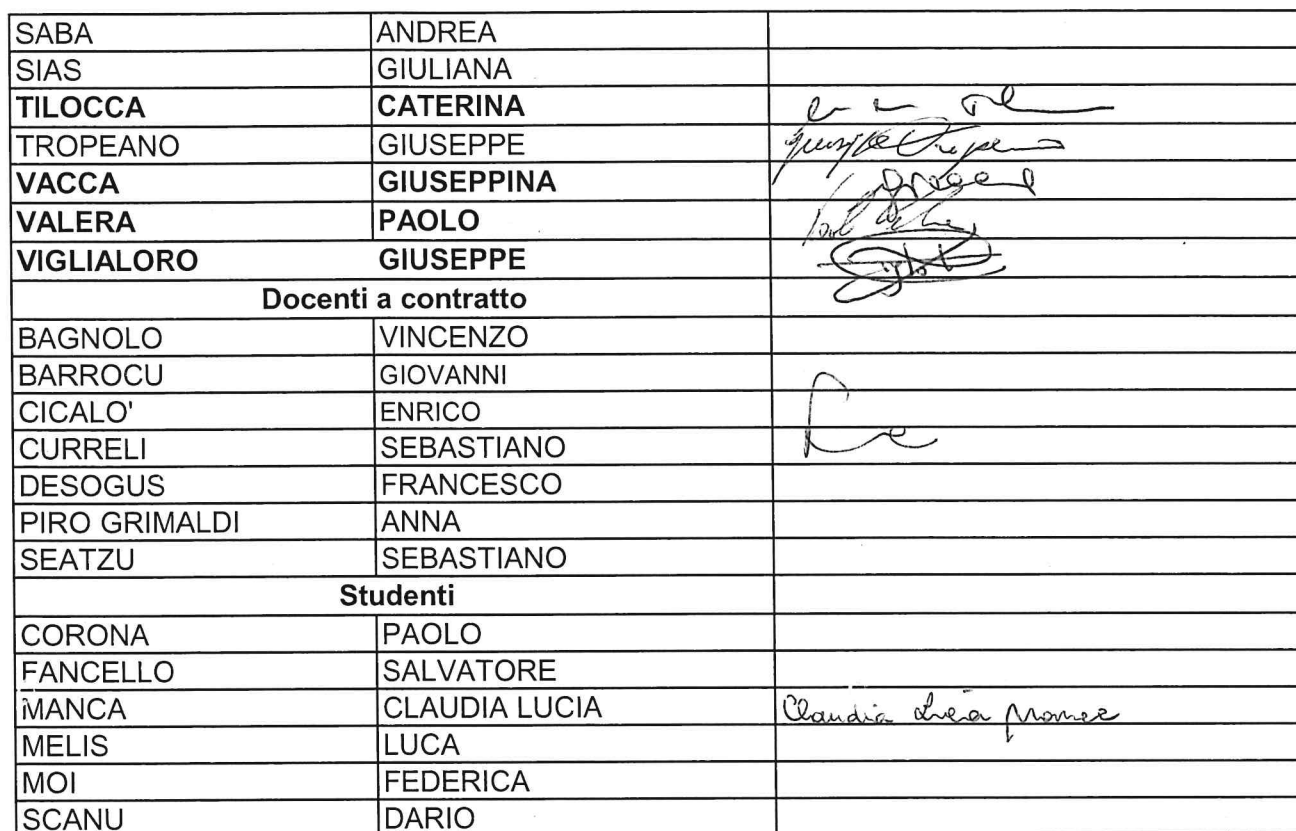 SABA ANDREA
SIAS GIULIANA
TILOCCA CATERINA
TROPEANO GIUSEPPE Giuseppe Tropeano
VACCA GIUSEPPINA
VALERA PAOLO
VIGLIALORO GIUSEPPE
Docenti a contratto
BAGNOLO VINCENZO
BARROCU GIOVANNI
CICALO' ENRICO
CURRELI SEBASTIANO
DESOGUS FRANCESCO
PIRO GRIMALDI ANNA
SEATZU SEBASTIANO
Studenti
CORONA PAOLO
FANCELLO SALVATORE
MANCA CLAUDIA LUCIA Claudia Lucia Manca
MELIS LUCA
MOI FEDERICA
SCANU DARIO